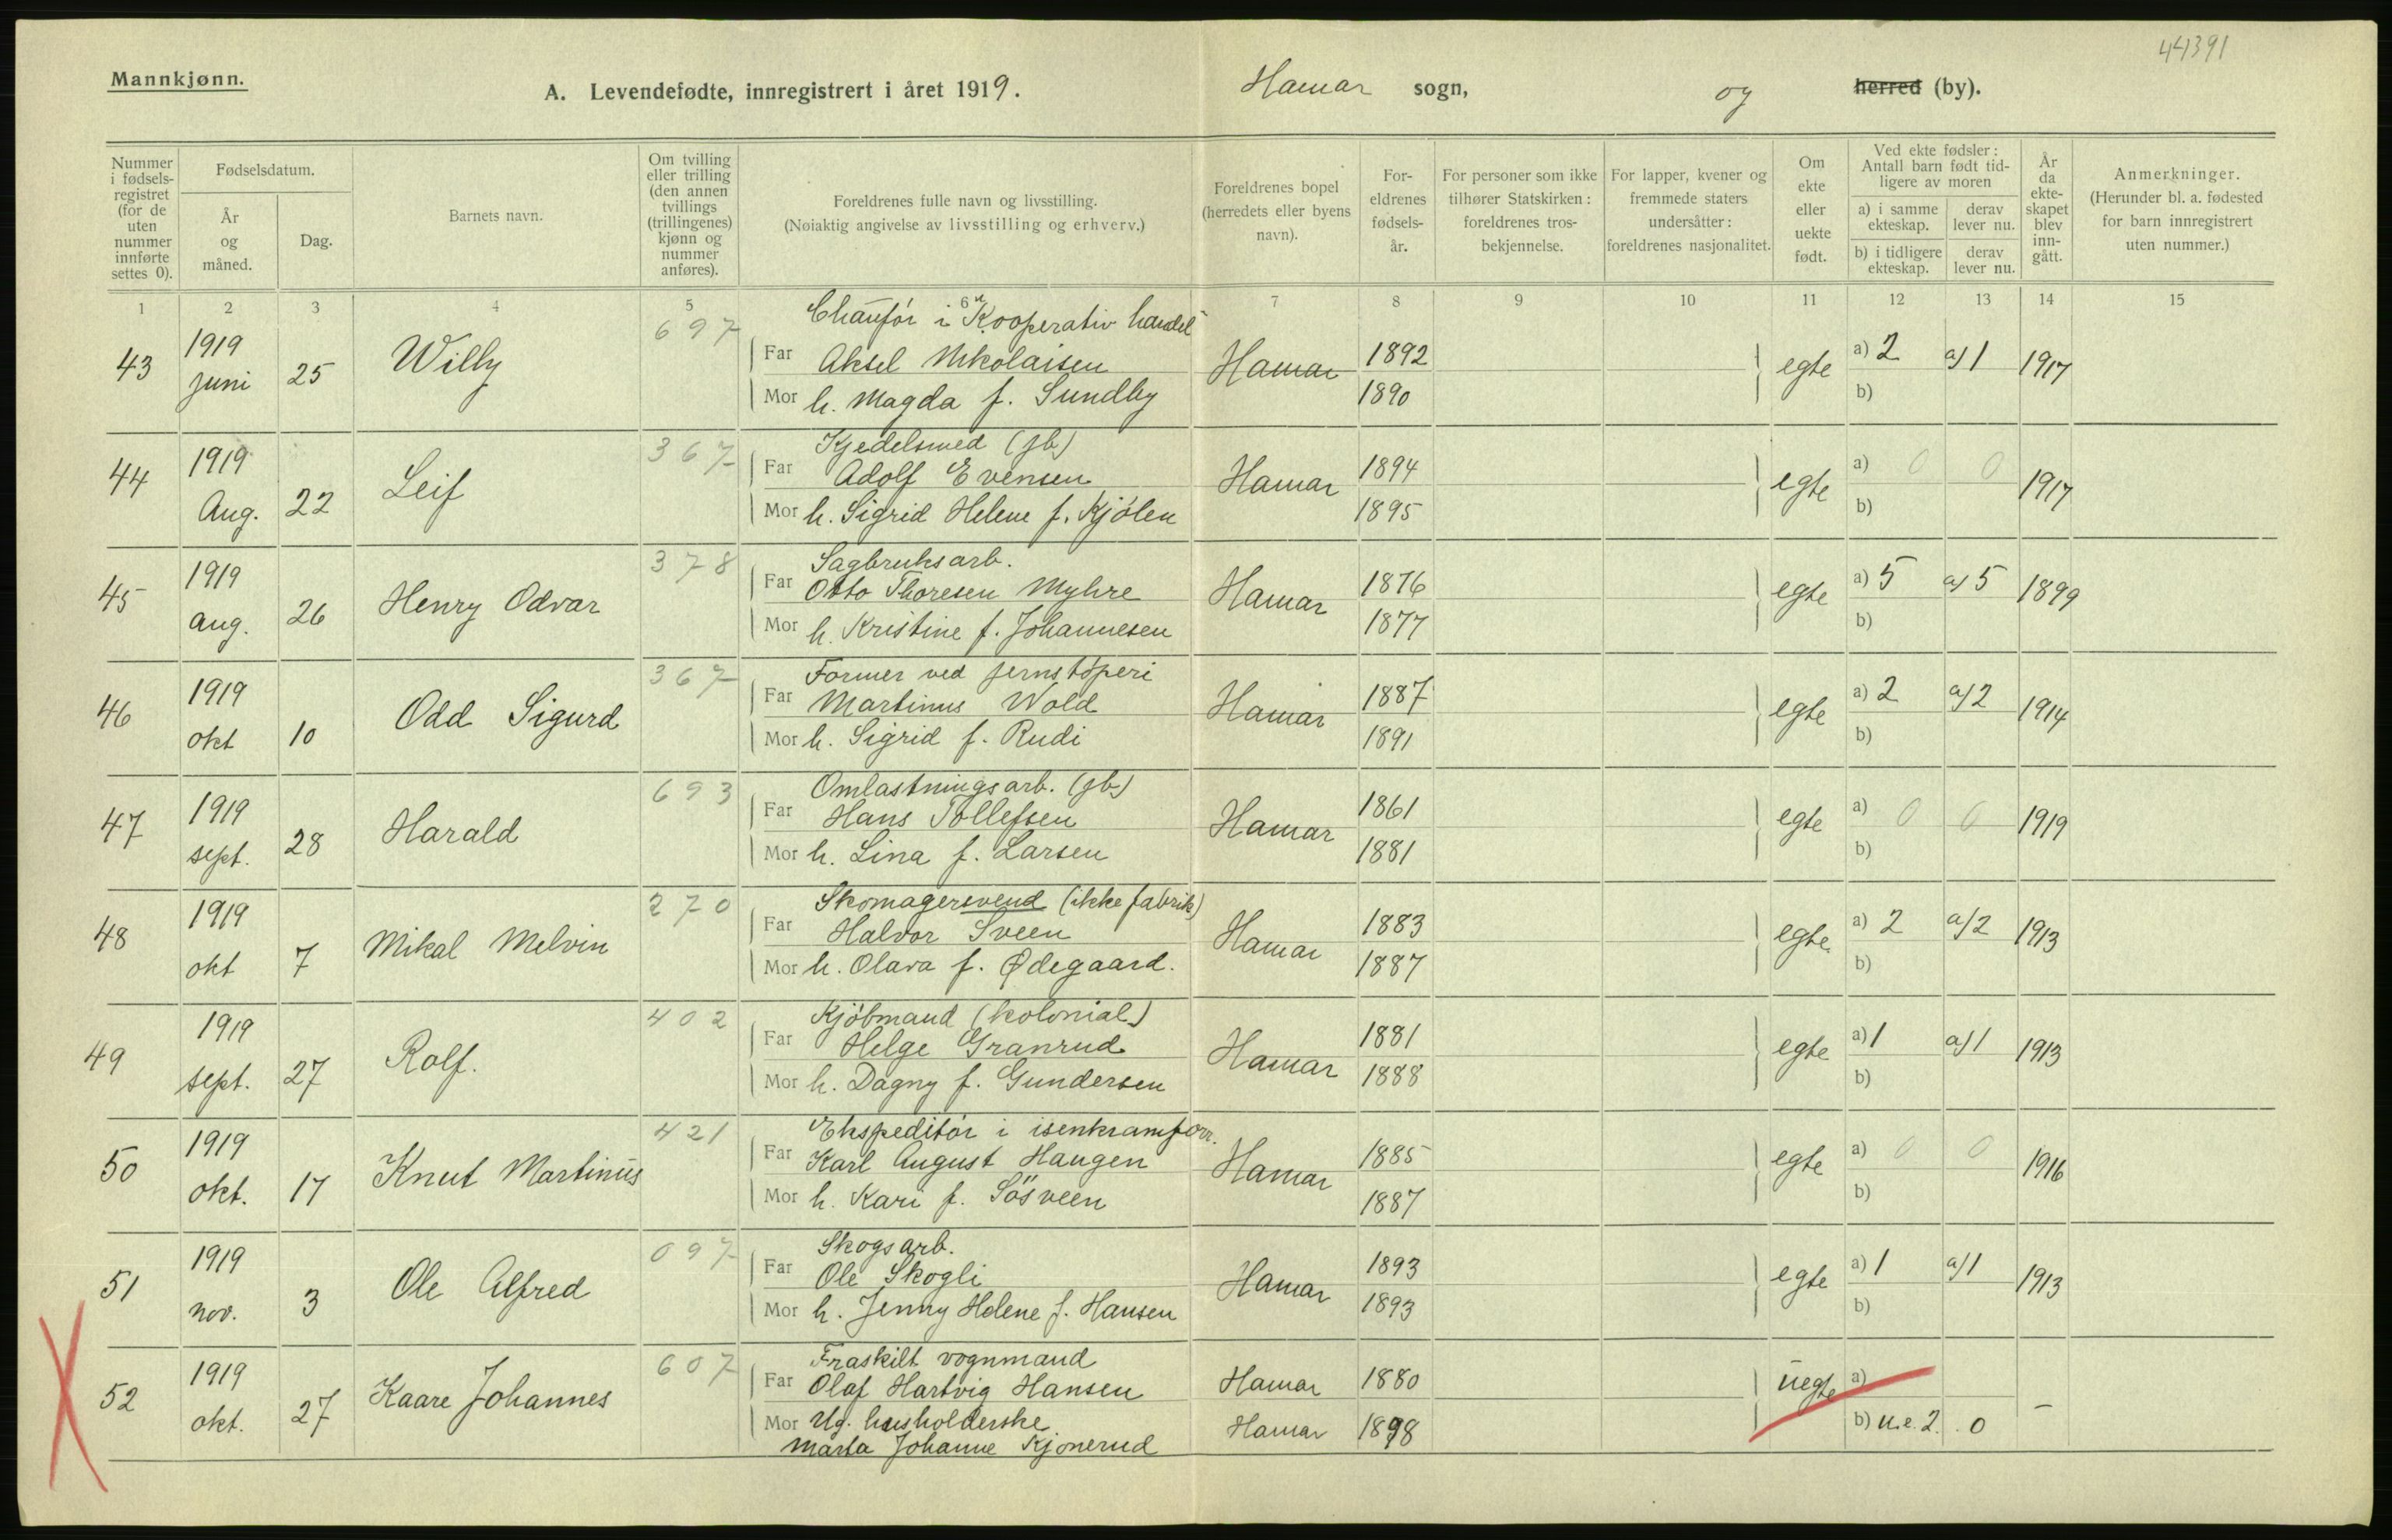 44391
Mannkjønn.
A. Levendefødte, innregistrert i året 1919.
Hamar sogn,
og herred (by).
Nummer i fødselsregistret (for de uten nummer innførte settes 0).
Fødselsdatum.
År og måned.
Dag.
Barnets navn.
Om tvilling eller trilling (den annen tvillings (trillingenes) kjønn og nummer anføres).
Foreldrenes fulle navn og livsstilling.
(Nøiaktig angivelse av livsstilling og erhverv.)
Foreldrenes bopel (herredets eller byens navn).
Foreldrenes fødselsår.
For personer som ikke tilhører Statskirken: foreldrenes trosbekjennelse.
For lapper, kvener og fremmede staters undersåtter: foreldrenes nasjonalitet.
Om ekte eller uekte født.
Ved ekte fødsler: Antall barn født tidligere av moren
a) i samme ekteskap.
derav lever nu.
b) i tidligere ekteskap.
derav lever nu.
År da ekteskapet blev inngått.
Anmerkninger.
(Herunder bl. a. fødested for barn innregistrert uten nummer.)
1 2 3 4 5 6 7 8 9 10 11 12 13 14 15
697 Chaufør i Kooperativ handel
43 1919 juni 25 Willy Far Aksel Nikolaisen Hamar 1892 egte a) 2 a) 1 1917
Mor h. Magda f. Sundby 1890 b)
367 Kjedelsmed (jb)
44 1919 Aug. 22 Leif Far Adolf Evensen Hamar 1894 egte a) 0 0 1917
Mor h. Sigrid Helene f. Kjølen 1895 b)
378 Sagbruksarb.
45 1919 aug. 26 Henry Odvar Far Otto Thoresen Myhre Hamar 1876 egte a) 5 a) 5 1899
Mor h. Kristine f. Johannesen 1877 b)
367 Former ved jernstøperi
46 1919 okt 10 Odd Sigurd Far Martinus Wold Hamar 1887 egte a) 2 a) 2 1914
Mor h. Sigrid f. Rudi 1891 b)
693 Omlastningsarb. (jb)
47 1919 sept. 28 Harald Far Hans Tollefsen Hamar 1861 egte a) 0 0 1919
Mor h. Lina f. Larsen 1881 b)
270 Skomagersvend (ikke fabrik)
48 1919 okt 7 Mikal Melvin Far Halvor Sveen Hamar 1883 egte a) 2 a) 2 1913
Mor h. Olava f. Ødegaard. 1887 b)
402 Kjøbmand (kolonial)
49 1919 sept. 27 Rolf. Far Helge Granrud Hamar 1881 egte a) 1 a) 1 1913
Mor h. Dagny f. Gundersen 1888 b)
421 Ekspeditør i isenkramforr.
50 1919 okt. 17 Knut Martinus Far Karl August Haugen Hamar 1885 egte a) 0 0 1916
Mor h. Kari f. Søsveen 1887 b)
097 Skogsarb.
51 1919 nov. 3 Ole Alfred Far Ole Skogli Hamar 1893 egte a) 1 a) 1 1913
Mor h. Jenny Helene f. Hansen 1893 b)
607 Fraskilt vognmand
52 1919 okt. 27 Kaare Johannes Far Olaf Hartvig Hansen Hamar 1880 uegte a) –
Mor Ug. husholderske Hamar 1898 b) u.e. 2. 0
Marta Johanne Kjonerud